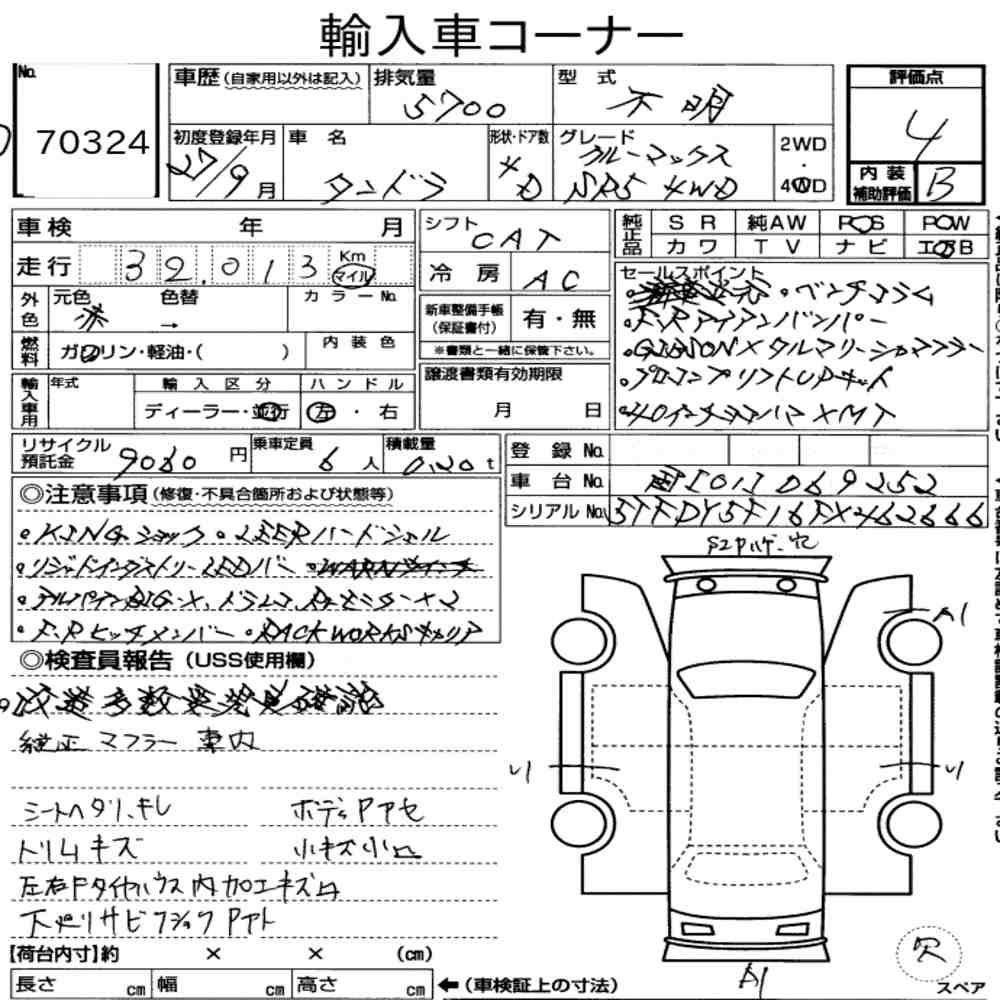 輸入車コーナー
No. 70324
車歴 (自家用以外は記入)
排気量 5700
型式 不明
評価点 4
初度登録年月 27/9月
車名 タンドラ
形状・ドア数 4D
グレード クルーマックス
SR5 4WD
2WD・4WD
内装補助評価 B
車検 年 月
シフト CAT
純正品 SR 純AW PS PW
カワ TV ナビ エアB
走行 39.013 Km マイル
冷房 AC
セールスポイント
・ベンチコラム
・F.Rアイアンバンパー
・GIBSONメタルマリーシャマフラー
・プロコンプリフトUPキット
・40インチヨコハマXMT
外色 元色 赤 色替 → カラーNo.
新車整備手帳(保証書付) 有・無
※書類と一緒に保管下さい。
燃料 ガソリン・軽油・( ) 内装色
輸入車用 年式 輸入区分 ハンドル
ディーラー・並行 左・右
譲渡書類有効期限
月 日
リサイクル預託金 9080円
乗車定員 6人
積載量 0.20t
登録No.
車台No. 国[01]069252
シリアルNo. 5TFDY5F16FX462666
◎注意事項 (修復・不具合箇所および状態等)
・KINGショック・LSERハードシェル
・リジッドインダストリーLEDバー
・アルパインBIG-X.ドラレコ.Rモニター×2
・F.Rヒッチメンバー・RACKWORKSキャリア
◎検査員報告 (USS使用欄)
・改造多数要現車確認
純正マフラー車内
シートヘタリ.キレ
ボディPアセ
トリムキズ
小キズ小凹
左右Fタイヤハウス内加工キズ凹
下廻りサビ フショクPアト
A1
リ
リ
A1
欠
スペア
【荷台内寸】約 × × (cm)
長さ cm 幅 cm 高さ cm
←(車検証上の寸法)